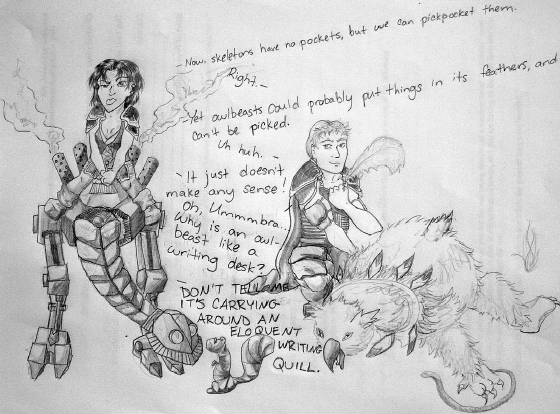 - Now. skeletons have no pockets, but we can pickpocket them.
Right. -
- Yet owlbeasts could probably put things in its feathers, and
can't be picked.
Uh huh. -
- It just doesn't
make any sense!
Oh, Ummmbra...
Why is an owl-
beast like a
writing desk?
- DON'T TELL ME
IT'S CARRYING
AROUND AN
ELOQUENT
WRITING
QUILL.